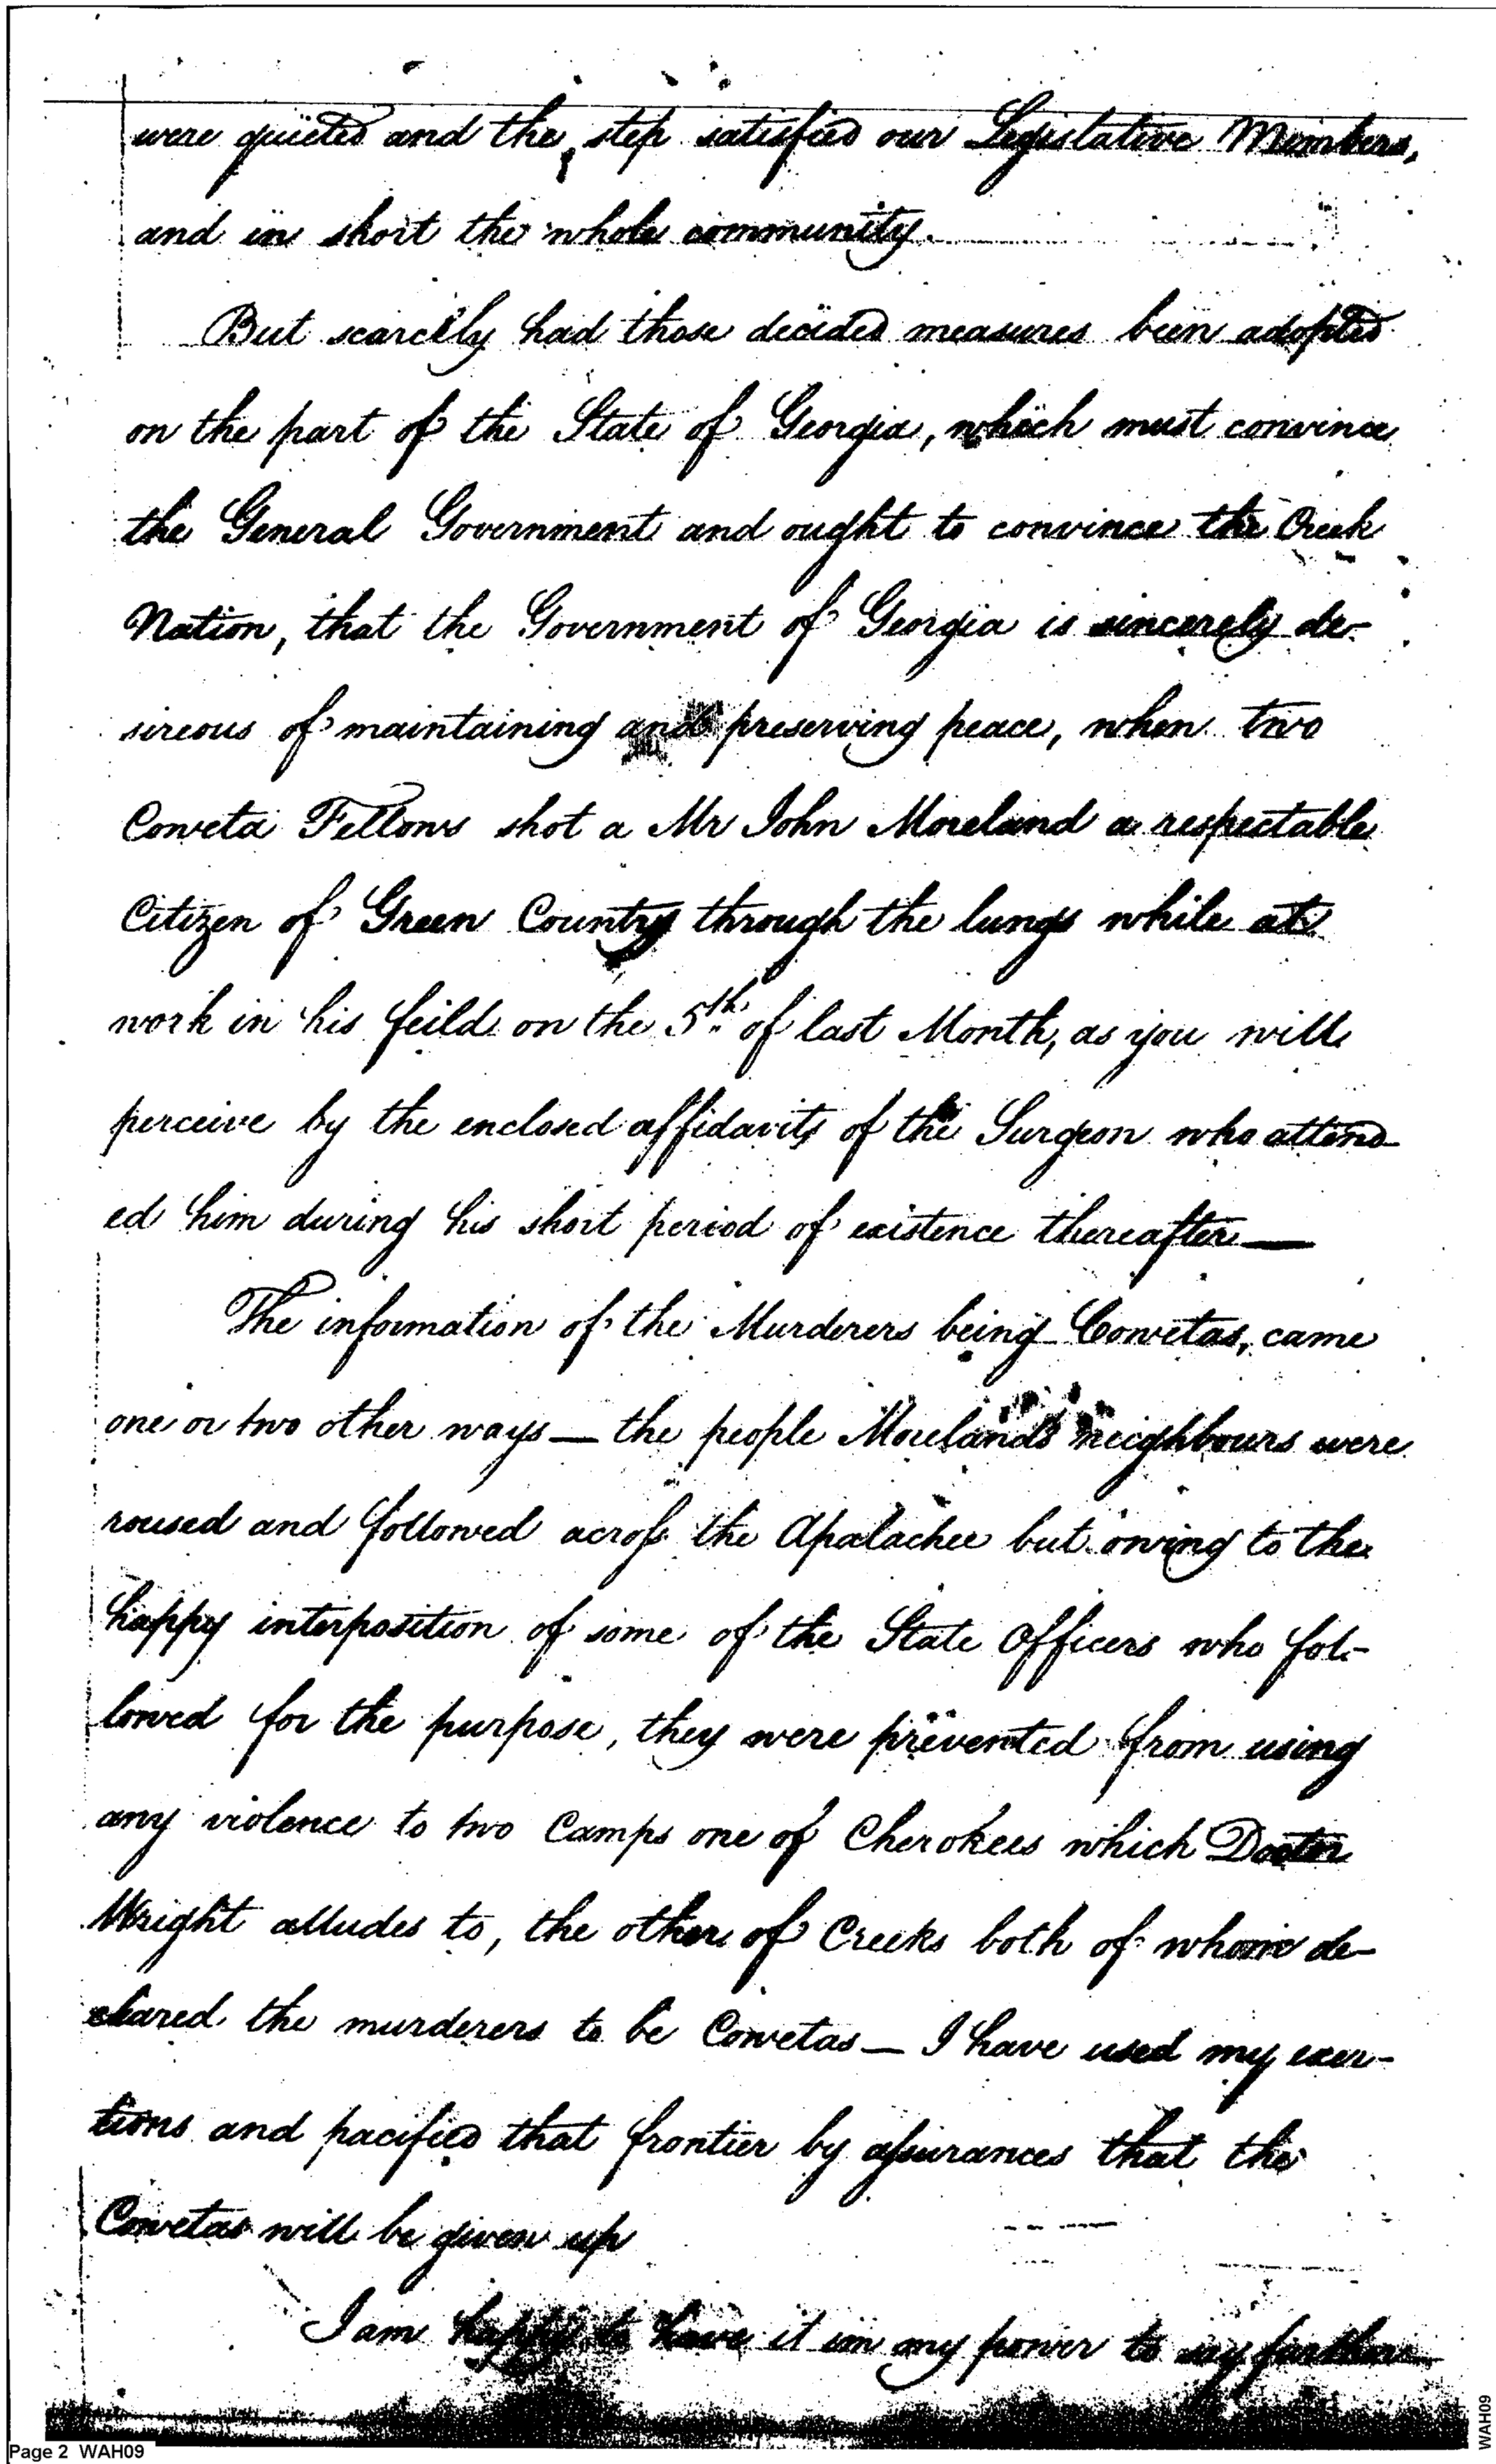 were quieted and the step satisfied our Legislative Members,
and in short the whole community.
But scarcely had those decided measures been adopted
on the part of the State of Georgia, which must convince
the General Government and ought to convince the Creek
Nation, that the Government of Georgia is sincerely de-
sireous of maintaining and preserving peace, when two
Coweta Fellows shot a Mr John Moreland a respectable
Citizen of Green Country through the lungs while at
work in his feild on the 5th of last Month, as you will
perceive by the enclosed affidavits of the Surgeon who attend
ed him during his short period of existence thereafter—
The information of the Murderers being Cowetas, came
one or two other ways — the people Morelands neighbours were
roused and followed across the Apalachee but owing to the
happy interposition of some of the State Officers who fol-
lowed for the purpose, they were prevented from using
any violence to two Camps one of Cherokees which Doctor
Wright alludes to, the other of Creeks both of whom de-
clared the murderers to be Cowetas — I have used my exer-
tions and pacified that frontier by assurances that the
Cowetas will be given up
I am happy to have it in my power to say further
Page 2 WAH09
WAH09